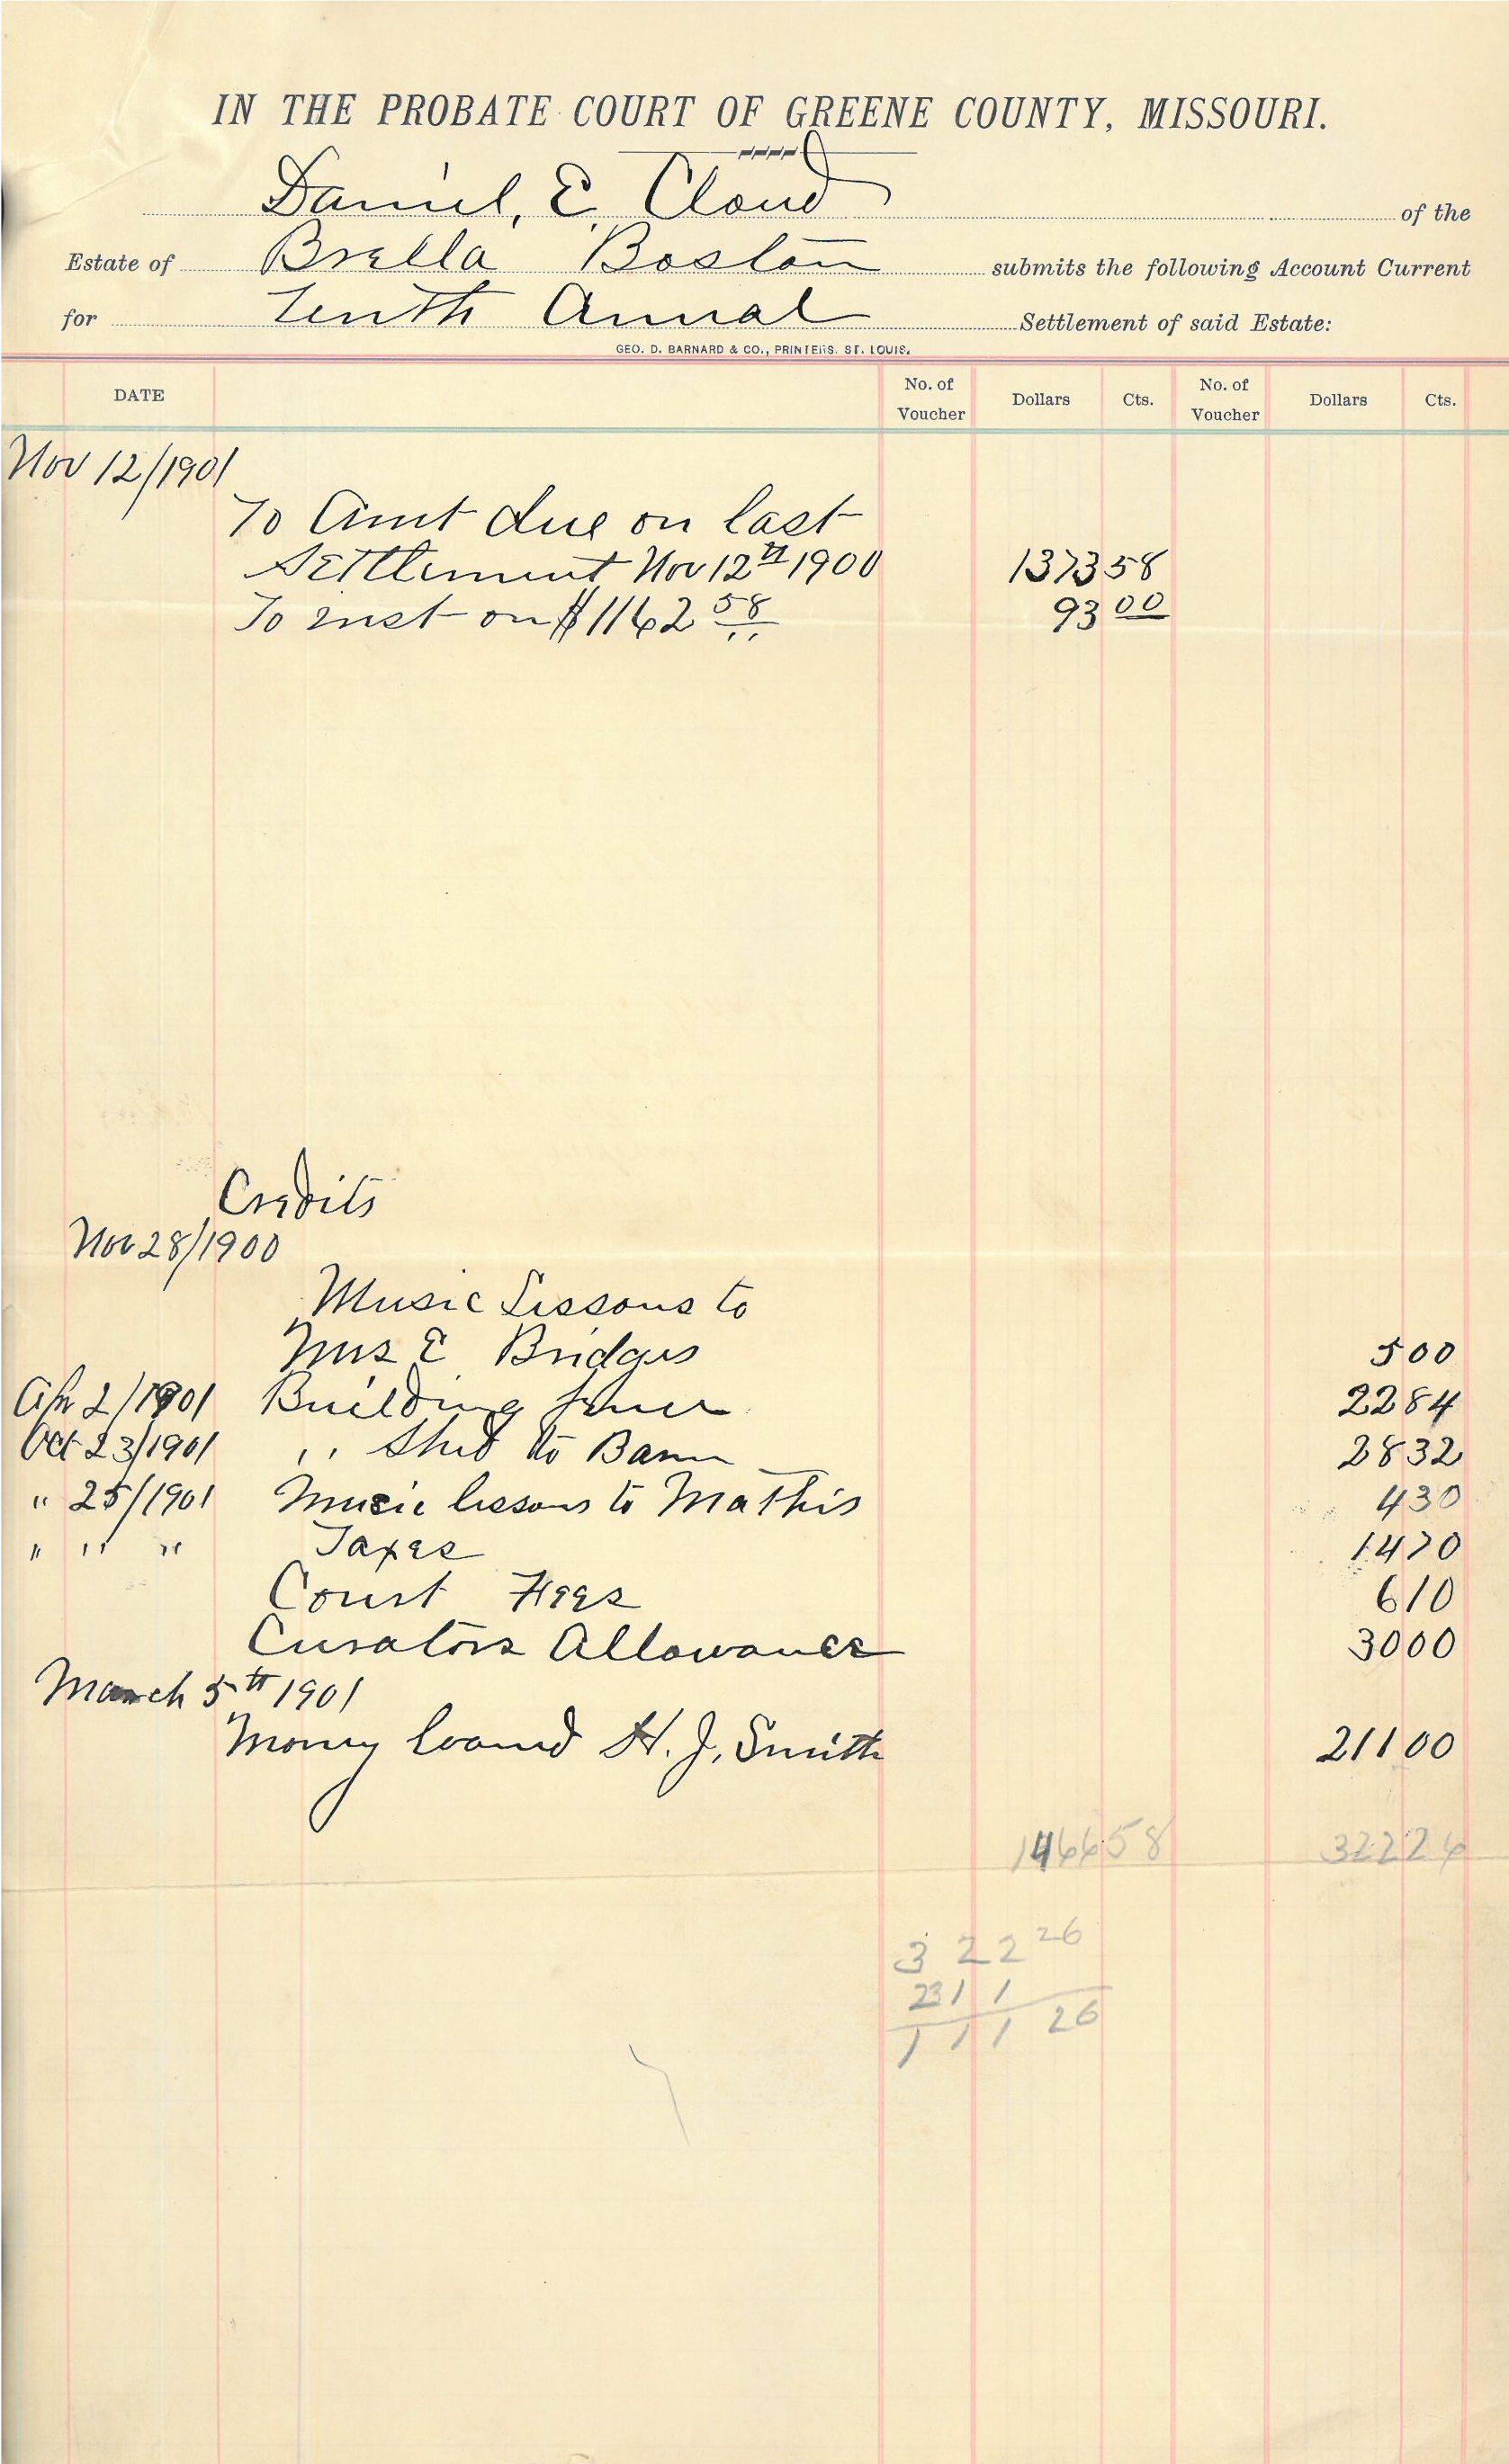 IN THE PROBATE COURT OF GREENE COUNTY, MISSOURI.
Daniel, E, Cloud of the
Estate of Brella Boston submits the following Account Current
for Tenth Annual Settlement of said Estate:
GEO. D. BARNARD & CO., PRINTERS. ST. LOUIS.
DATE No. of Voucher Dollars Cts. No. of Voucher Dollars Cts.
Nov 12/1901
To Amt due on last
Settlement Nov 12th 1900 1373 58
To inst on $1162 58 93 00
Credits
Nov 28/1900
Music Lessons to
Mrs E Bridges 5 00
Apr 2/1901 Building fence 22 84
Oct 23/1901 ,, Shed to Barn 28 32
" 25/1901 Music lessons to Mathis 4 30
" " " Taxes 14 70
Court Fees 6 10
Curators Allowance 30 00
March 5th 1901
Money loaned H. J. Smith 211 00
1466 58 322 26
322 26
211
111 26